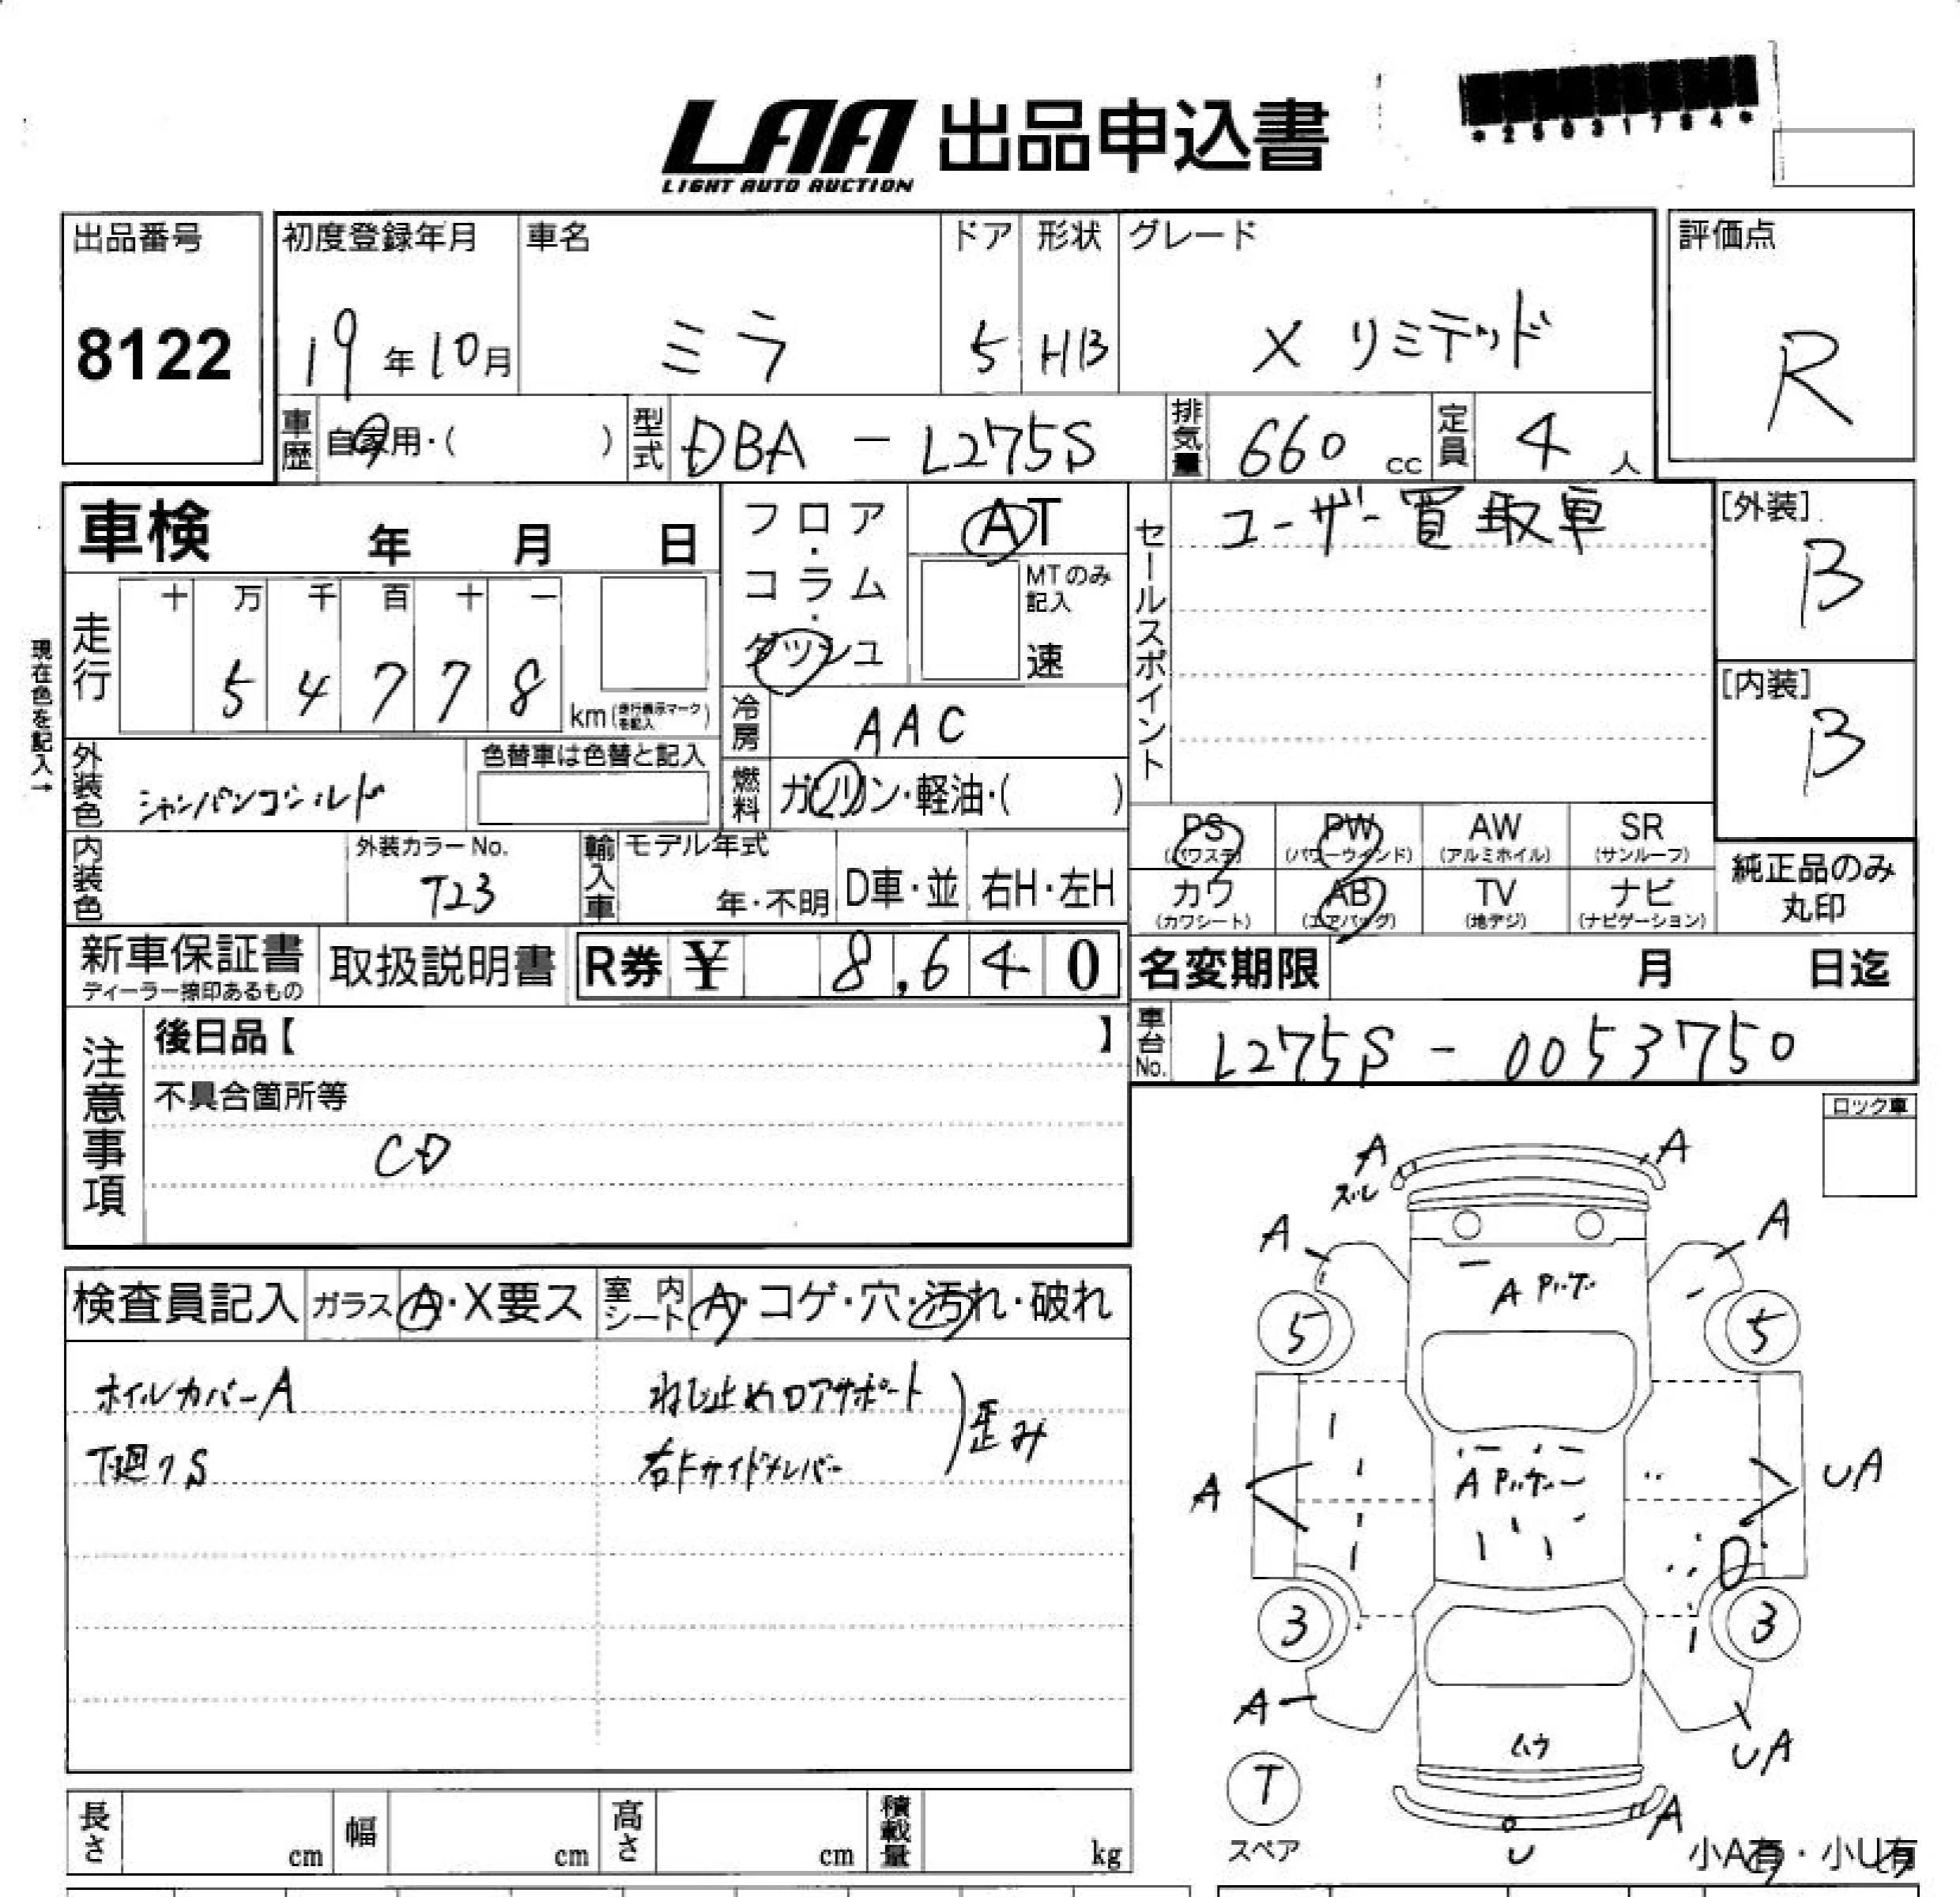 LAA 出品申込書
LIGHT AUTO AUCTION
*25031784*
出品番号
8122
初度登録年月 車名 ドア 形状 グレード
19年10月 ミラ 5 HB X リミテッド
評価点
R
車歴 自家用・( ) 型式 DBA - L275S 排気量 660 cc 定員 4 人
車検 年 月 日
フロア・コラム・ダッシュ
AT
MTのみ記入
速
セールスポイント
ユーザー買取車
[外装]
B
[内装]
B
現在色を記入→
走行
十 万 千 百 十 一
5 4 7 7 8 km (走行表示マークを記入)
冷房 AAC
外装色 シャンパンゴールド
色替車は色替と記入
燃料 ガソリン・軽油・( )
内装色
外装カラーNo.
T23
輸入車 モデル年式
年・不明 D車・並 右H・左H
PS (パワステ) PW (パワーウインド) AW (アルミホイル) SR (サンルーフ)
カワ (カワシート) AB (エアバッグ) TV (地デジ) ナビ (ナビゲーション)
純正品のみ
丸印
新車保証書
ディーラー捺印あるもの
取扱説明書
R券 ¥ 8,640
名変期限 月 日迄
車台No. L275S - 0053750
注意事項
後日品【 】
不具合箇所等
CD
ロック車
検査員記入 ガラス A・X要ス 室内シート A・コゲ・穴・汚れ・破れ
ホイルカバーA
下廻りS
ねじ止めロアサポート
右Fサイドメンバー
歪み
A A
ズレ
A A
A
5 5
A
A UA
3 3
A UA
T
スペア
A
U
小A有・小U有
長さ cm 幅 cm 高さ cm 積載量 kg